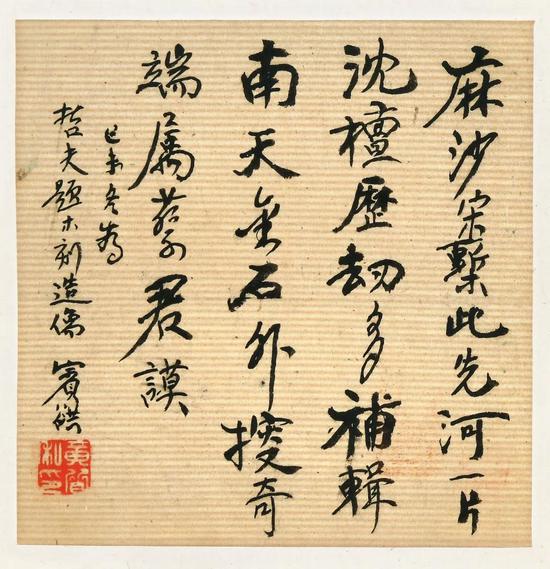 麻沙宋槧此先河一片
沈檀歷劫多補輯
南天金石外搜奇
端屬蔡君謨
己未冬為
哲夫題木刻造像 賓谼
黃質私印